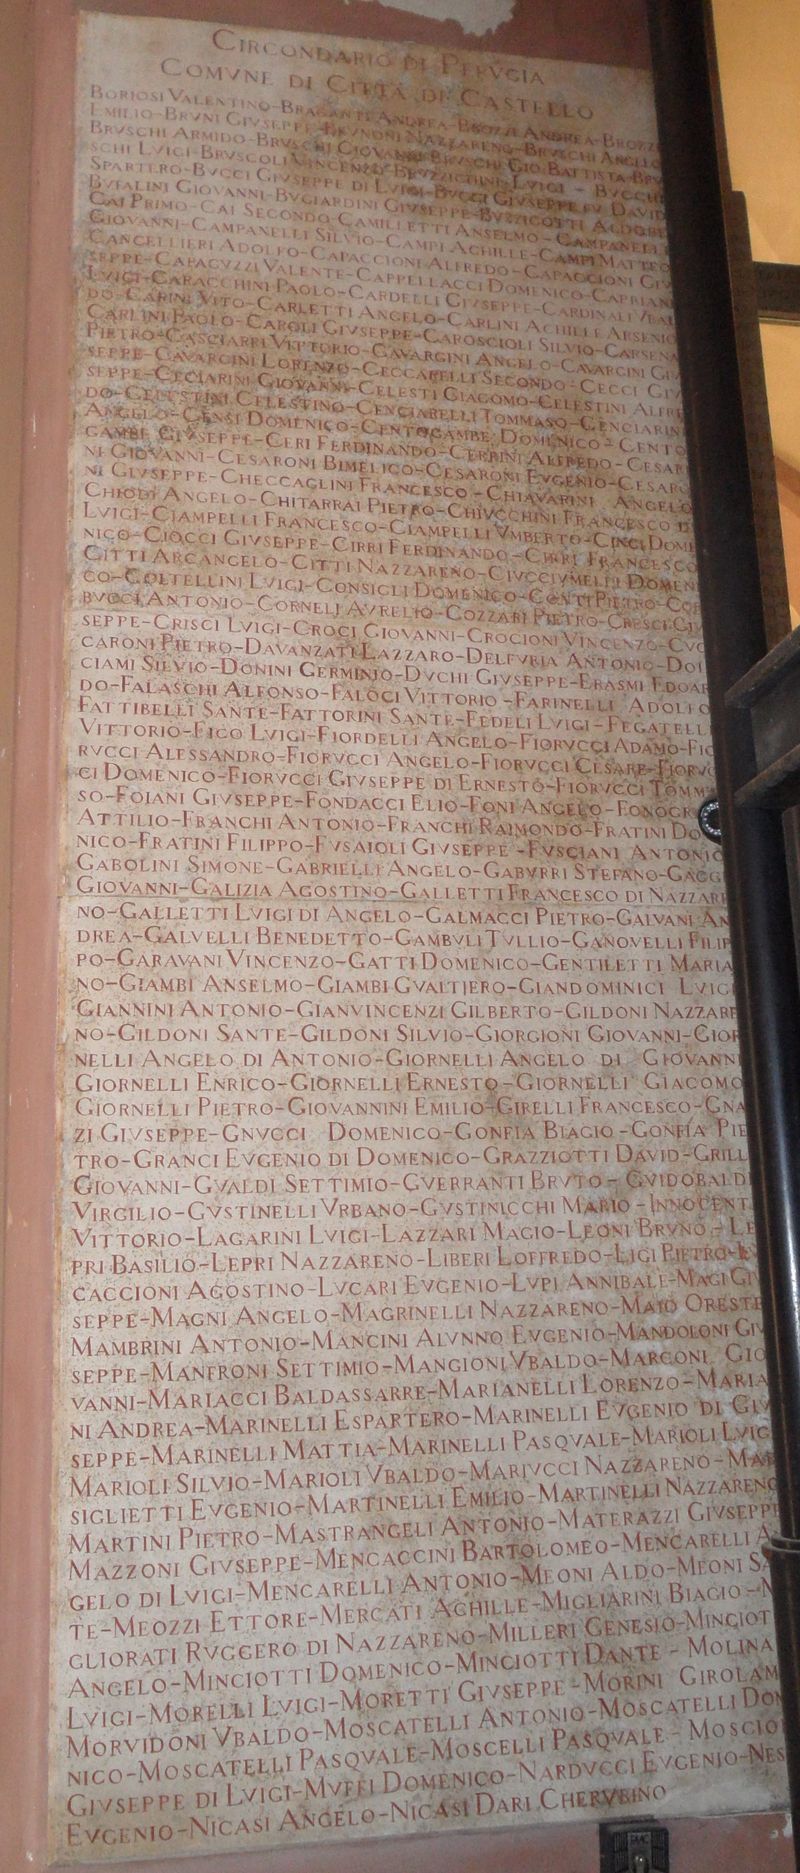 CIRCONDARIO DI PERVGIA
COMVNE DI CITTÀ DI CASTELLO
BORIOSI VALENTINO-BRAGANTE ANDREA-BROZZI ANDREA-BROZZI
EMILIO-BRVNI GIVSEPPE-BRVNONI NAZZARENO-BRVSCHI ANGELO
BRVSCHI ARMIDO-BRVSCHI GIOVANNI-BRVSCHI GIO BATTISTA-BRV
SCHI LVIGI-BRVSCOLI VINCENZO-BRVZZICHINI LVIGI-BVCCHI
SPARTERO-BVCCI GIVSEPPE DI LVIGI-BVCCI GIVSEPPE FV DAVID
BVFALINI GIOVANNI-BVGIARDINI GIVSEPPE-BVZZICOTTI ALDOB
CAI PRIMO-CAI SECONDO-CAMILLETTI ANSELMO-CAMPANELLI
GIOVANNI-CAMPANELLI SILVIO-CAMPI ACHILLE-CAMPI MATTEO
CANCELLIERI ADOLFO-CAPACCIONI ALFREDO-CAPACCIONI GIV
SEPPE-CAPAGVZZI VALENTE-CAPPELLACCI DOMENICO-CAPRIANI
LVIGI-CARACCHINI PAOLO-CARDELLI GIVSEPPE-CARDINALI VBAL
DO-CARINI VITO-CARLETTI ANGELO-CARLINI ACHILLE ARSENIO
CARLINI PAOLO-CAROLI GIVSEPPE-CAROSCIOLI SILVIO-CARSENA
PIETRO-CASCIARRI VITTORIO-CAVARGINI ANGELO-CAVARGINI GI
SEPPE-CAVARGINI LORENZO-CECCARELLI SECONDO-CECCI GIV
SEPPE-CECIARINI GIOVANNI-CELESTI GIACOMO-CELESTINI ALFRE
DO-CELESTINI CELESTINO-CENCIARELLI TOMMASO-CENCIARIN
ANGELO-CENSI DOMENICO-CENTOGAMBE DOMENICO-CENTO
GAMBE GIVSEPPE-CERI FERDINANDO-CERBINI ALFREDO-CESAR
NI GIOVANNI-CESARONI BIMELICO-CESARONI EVGENIO-CESARO
NI GIVSEPPE-CHECCAGLINI FRANCESCO-CHIAVARINI ANGELO
CHIODI ANGELO-CHITARRAI PIETRO-CHIVCCHINI FRANCESCO D
LVIGI-CIAMPELLI FRANCESCO-CIAMPELLI VMBERTO-CINCI DOME
NICO-CIOCCI GIVSEPPE-CIRRI FERDINANDO-CIRRI FRANCESCO
CITTI ARCANGELO-CITTI NAZZARENO-CIVCCIVMELLI DOMENI
CO-COLTELLINI LVIGI-CONSIGLI DOMENICO-CONTI PIETRO-COR
BVCCI ANTONIO-CORNELI AVRELIO-COZZARI PIETRO-CRESCI GIV
SEPPE-CRISCI LVIGI-CROCI GIOVANNI-CROCIONI VINCENZO-CVC
CARONI PIETRO-DAVANZATI LAZZARO-DELFVRIA ANTONIO-DOL
CIAMI SILVIO-DONINI GERMINIO-DVCHI GIVSEPPE-ERASMI EDOAR
DO-FALASCHI ALFONSO-FALOCI VITTORIO-FARINELLI ADOLFO
FATTIBELLI SANTE-FATTORINI SANTE-FEDELI LVIGI-FEGATELLI
VITTORIO-FICO LVIGI-FIORDELLI ANGELO-FIORVCCI ADAMO-FIO
RVCCI ALESSANDRO-FIORVCCI ANGELO-FIORVCCI CESARE-FIORVC
CI DOMENICO-FIORVCCI GIVSEPPE DI ERNESTO-FIORVCCI TOMMA
SO-FOIANI GIVSEPPE-FONDACCI ELIO-FONI ANGELO-FONOGR
ATTILIO-FRANCHI ANTONIO-FRANCHI RAIMONDO-FRATINI DO
NICO-FRATINI FILIPPO-FVSAIOLI GIVSEPPE-FVSCIANI ANTONIO
GABOLINI SIMONE-GABRIELLI ANGELO-GABVRRI STEFANO-GAGG
GIOVANNI-GALIZIA AGOSTINO-GALLETTI FRANCESCO DI NAZZARE
NO-GALLETTI LVIGI DI ANGELO-GALMACCI PIETRO-GALVANI AN
DREA-GALVELLI BENEDETTO-GAMBVLI TVLLIO-GANOVELLI FILIP
PO-GARAVANI VINCENZO-GATTI DOMENICO-GENTILETTI MARIA
NO-GIAMBI ANSELMO-GIAMBI GVALTIERO-GIANDOMINICI LVIGI
GIANNINI ANTONIO-GIANVINCENZI GILBERTO-GILDONI NAZZARE
NO-GILDONI SANTE-GILDONI SILVIO-GIORGIONI GIOVANNI-GIOR
NELLI ANGELO DI ANTONIO-GIORNELLI ANGELO DI GIOVANNI
GIORNELLI ENRICO-GIORNELLI ERNESTO-GIORNELLI GIACOMO
GIORNELLI PIETRO-GIOVANNINI EMILIO-GIRELLI FRANCESCO-GNA
ZI GIVSEPPE-GNVCCI DOMENICO-GONFIA BIAGIO-GONFIA PIE
TRO-GRANCI EVGENIO DI DOMENICO-GRAZZIOTTI DAVID-GRILL
GIOVANNI-GVALDI SETTIMIO-GVERRANTI BRVTO-GVIDOBALDI
VIRGILIO-GVSTINELLI VRBANO-GVSTINICCHI MARIO-INNOCENT
VITTORIO-LAGARINI LVIGI-LAZZARI MAGIO-LEONI BRVNO-LE
PRI BASILIO-LEPRI NAZZARENO-LIBERI LOFFREDO-LIGI PIETRO-LV
CACCIONI AGOSTINO-LVCARI EVGENIO-LVPI ANNIBALE-MAGI GIV
SEPPE-MAGNI ANGELO-MAGRINELLI NAZZARENO-MAIO ORESTE
MAMBRINI ANTONIO-MANCINI ALVNNO EVGENIO-MANDOLONI GIV
SEPPE-MANFRONI SETTIMIO-MANGIONI VBALDO-MARCONI GIO
VANNI-MARIACCI BALDASSARRE-MARIANELLI LORENZO-MARIA
NI ANDREA-MARINELLI ESPARTERO-MARINELLI EVGENIO DI GIV
SEPPE-MARINELLI MATTIA-MARINELLI PASQVALE-MARIOLI LVIGI
MARIOLI SILVIO-MARIOLI VBALDO-MARIVCCI NAZZARENO-MAR
SIGLIETTI EVGENIO-MARTINELLI EMILIO-MARTINELLI NAZZARENO
MARTINI PIETRO-MASTRANGELI ANTONIO-MATERAZZI GIVSEPPE
MAZZONI GIVSEPPE-MENCACCINI BARTOLOMEO-MENCARELLI A
GELO DI LVIGI-MENCARELLI ANTONIO-MEONI ALDO-MEONI SA
TE-MEOZZI ETTORE-MERCATI ACHILLE-MIGLIARINI BIAGIO-M
GLIORATI RVGGERO DI NAZZARENO-MILLERI GENESIO-MINCIOT
ANGELO-MINCIOTTI DOMENICO-MINCIOTTI DANTE-MOLINA
LVIGI-MORELLI LVIGI-MORETTI GIVSEPPE-MORINI GIROLAM
MORVIDONI VBALDO-MOSCATELLI ANTONIO-MOSCATELLI DOM
NICO-MOSCATELLI PASQVALE-MOSCELLI PASQVALE-MOSCIO
GIVSEPPE DI LVIGI-MVFFI DOMENICO-NARDVCCI EVGENIO-NES
EVGENIO-NICASI ANGELO-NICASI DARI CHERVBINO